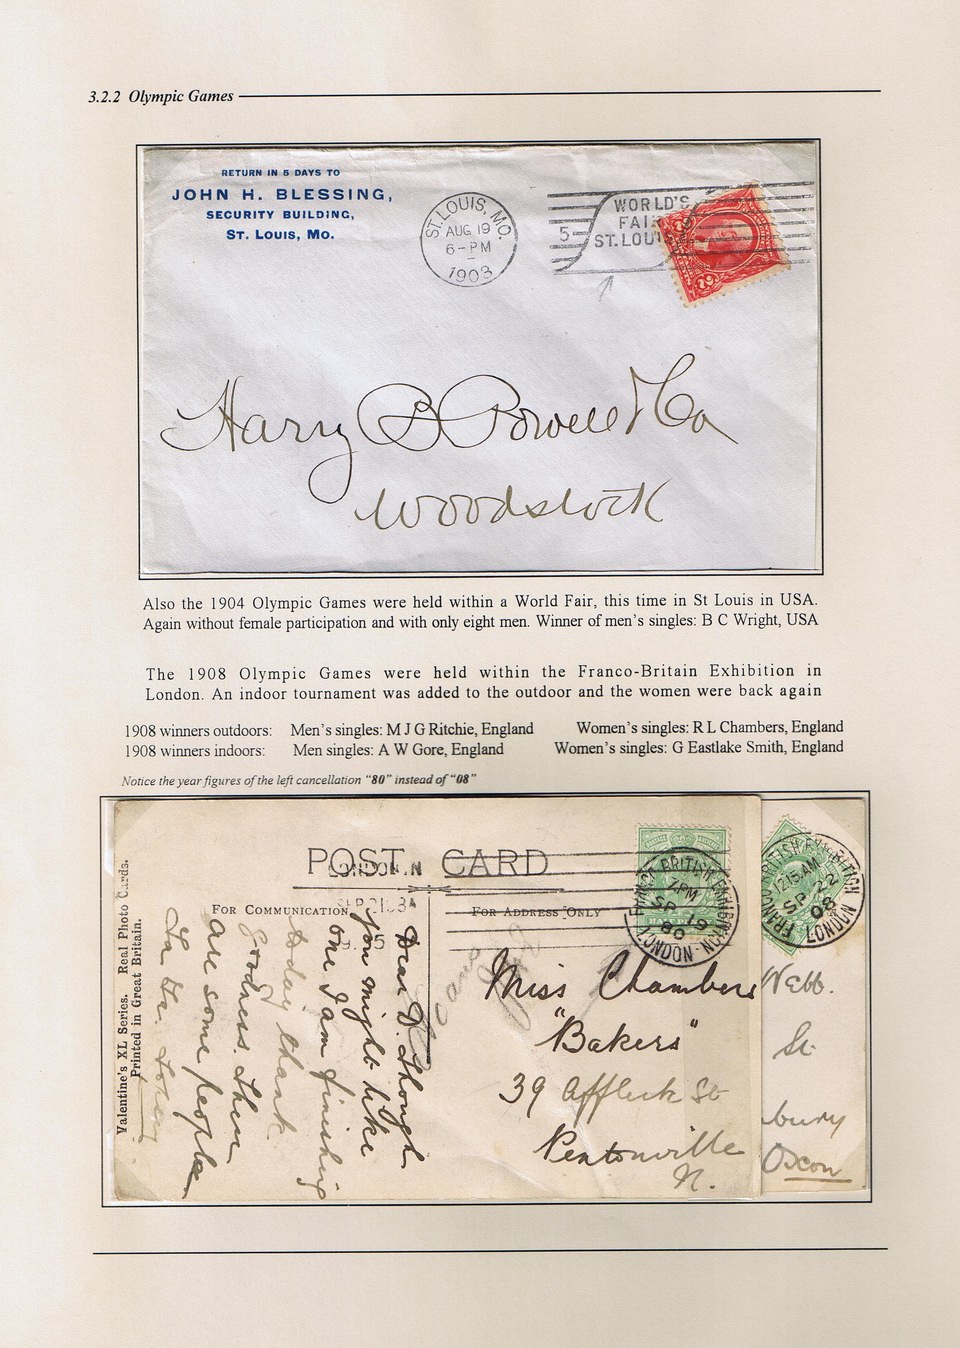 3.2.2 Olympic Games
RETURN IN 5 DAYS TO
JOHN H. BLESSING,
SECURITY BUILDING,
ST. LOUIS, MO.
ST. LOUIS, MO.
AUG 19
6-PM
1903
5
WORLD'S
FAIR
ST. LOUIS
Harry B Powell & Co
Woodstock
Also the 1904 Olympic Games were held within a World Fair, this time in St Louis in USA.
Again without female participation and with only eight men. Winner of men's singles: B C Wright, USA
The 1908 Olympic Games were held within the Franco-Britain Exhibition in
London. An indoor tournament was added to the outdoor and the women were back again
1908 winners outdoors: Men's singles: M J G Ritchie, England Women's singles: R L Chambers, England
1908 winners indoors: Men singles: A W Gore, England Women's singles: G Eastlake Smith, England
Notice the year figures of the left cancellation "80" instead of "08"
Valentine's XL Series. Real Photo Cards.
Printed in Great Britain.
POST CARD
LONDON.N
FOR COMMUNICATION
FOR ADDRESS ONLY
FRANCO BRITISH EXHIBITION
7.PM
SP 19
80
LONDON
Dear
you might like
one I am finishing
today thank
Goodness. Them
are some people
Miss Chambers
"Bakers"
39 Affleck St
Pentonville
N.
FRANCO BRITISH EXHIBITION
12.15.AM
SP 22
08
LONDON
Webb.
St
bury
Oxon